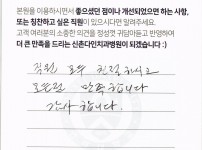 본원을 이용하시면서 좋으셨던 점이나 개선되었으면 하는 사항,
또는 칭찬하고 싶은 직원이 있으시다면 말씀해주세요.
고객 여러분의 소중한 의견을 항상 귀담아듣고 반영하여
더 큰 만족을 드리는 신촌다인치과병원이 되겠습니다 :)
직원 모두 친절하시고
모든걸 만족합니다
감사합니다.